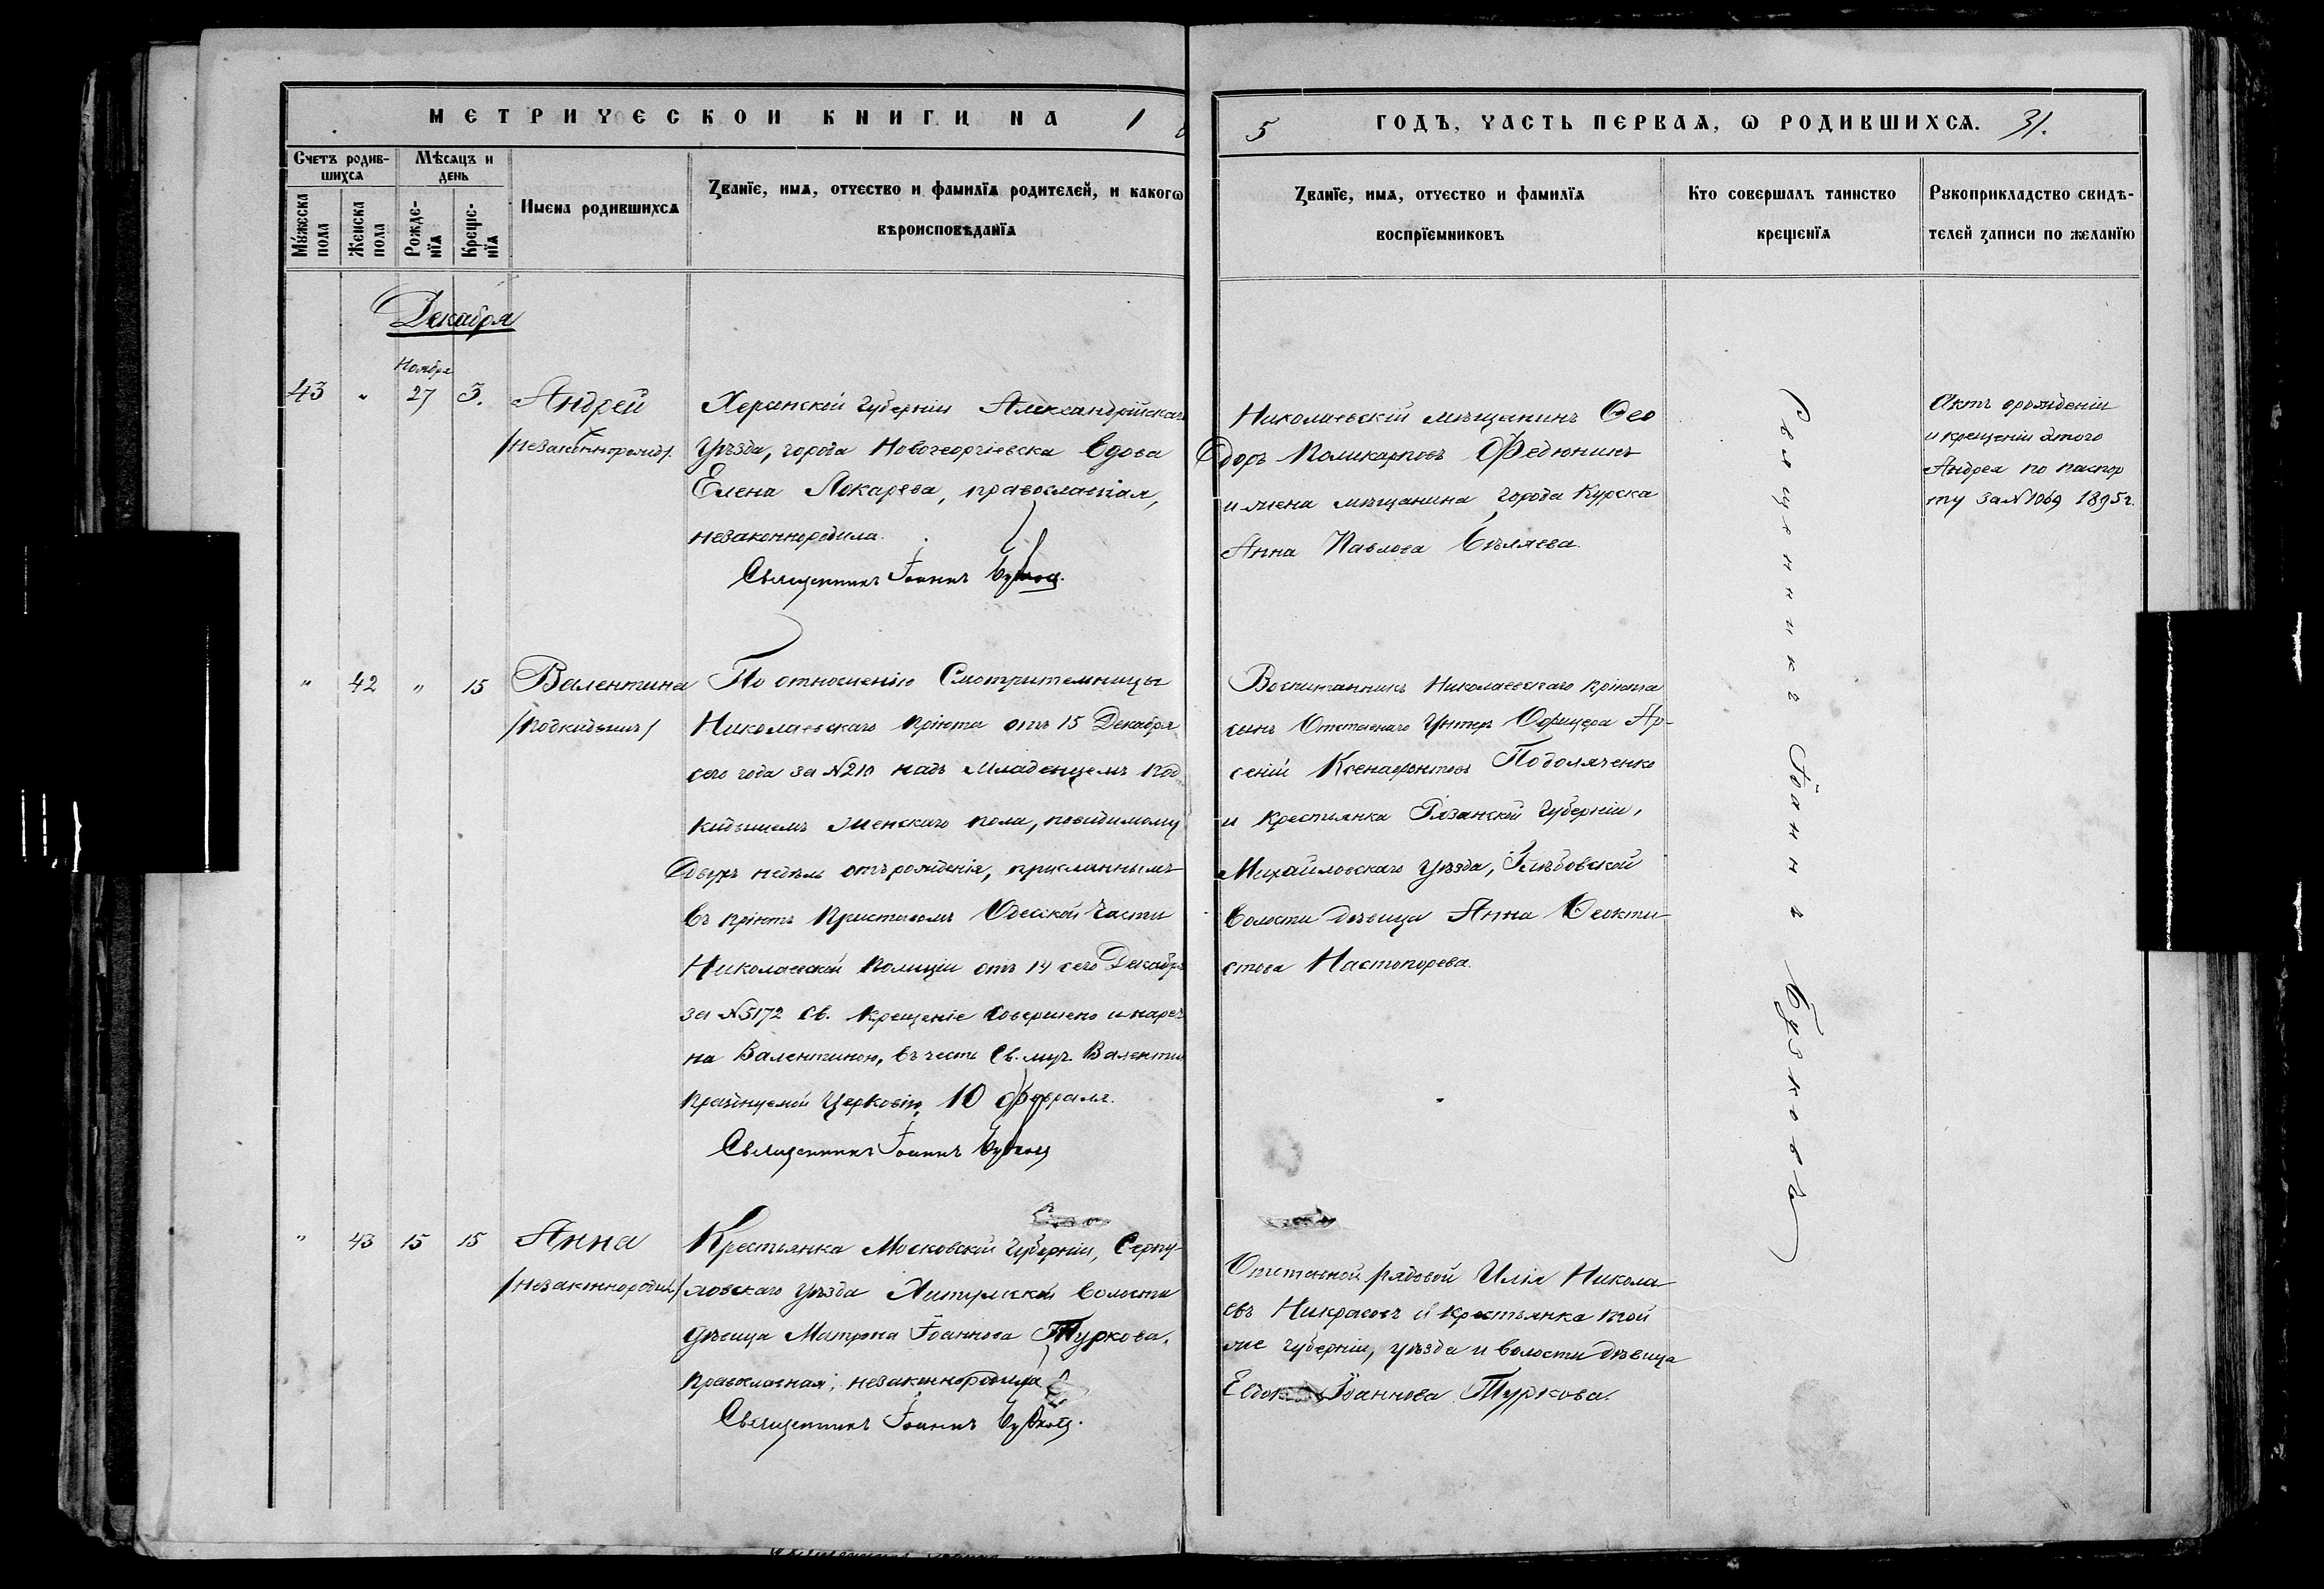 МЕТРИЧЕСКОЙ КНИГИ НА 1
5 ГОДЪ, ЧАСТЬ ПЕРВАЯ, Ѡ РОДИВШИХСЯ. 31.
Счетъ родив-
шихся
Мѣсяцъ и
день
Мужеска пола
Женска пола
Рожде-
нїя
Креще-
нїя
Имена родившихся
Званїе, имя, отчество и фамилїя родителей, и какогѡ
вѣроисповѣданїя
Званїе, имя, отчество и фамилїя
воспрїемниковъ
Кто совершалъ таинство
крещенїя
Рукоприкладство свидѣ-
телей записи по желанїю
Декабря
Ноября
43 " 27 3. Андрей
/незаконнорожд/.
Херсонской Губерніи Александрійскаго
Уѣзда, города Новогеоргіевска Вдова
Елена Локарева, православная,
незаконнородила.
Священникъ Іоаннъ
Николаевскій мѣщанинъ Ѳео
доръ Поликарповъ Федюнинъ
и жена мѣщанина города Курска
Анна Павлова Бѣляева.
Священникъ Іоаннъ
Актъ орожденіи
и крещеніи этого
Андрея по паспор
ту за № 1069 1895 г.
" 42 " 15 Валентина
/подкидышъ/
По отношенію Смотрительницы
Николаевскаго Пріюта отъ 15 Декабря
сего года за № 210 надъ младенцемъ под
кидышемъ женскаго пола, повидимому
Двухъ недѣль отъ рожденія, присланнымъ
въ пріютъ Приставомъ Одесской Части
Николаевской Полиціи отъ 14 сего Декабря
за № 5172 Св. Крещеніе Совершено и нарече
на Валентиною, въ честь Св. муч. Валенти
празднуемой Церковію 10 Февраля.
Священникъ Іоаннъ
Воспитанникъ Николаевскаго пріюта
сынъ Отставнаго Унтеръ Офицера Ар-
сеній Ксенофонтовъ Подоляченко
и Крестьянка Рязанской Губерніи,
Михайловскаго Уѣзда, Глѣбовской
Волости дѣвица Анна Ѳеокти-
стова Настопорева.
" 43 15 15 Анна
/незаконнорожд/
Крестьянка Московской Губерніи, Серпу-
ховскаго Уѣзда Волости
дѣвица Матрона Іоаннова Туркова,
православная, незаконнородила
Священникъ Іоаннъ
Отставной рядовой Илія Никола
евъ Никрасовъ и крестьянка той
же губерніи, уѣзда и волости дѣвица
Іоаннова Туркова.